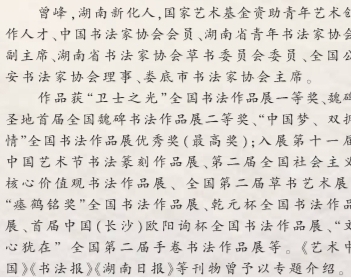 曾峰,湖南新化人,国家艺术基金资助青年艺术创
作人才、中国书法家协会会员、湖南省青年书法家协会
副主席、湖南省书法家协会草书委员会委员、全国公
安书法家协会理事、娄底市书法家协会主席。
作品获“卫士之光”全国书法作品展一等奖、魏碑
圣地首届全国魏碑书法作品展二等奖、“中国梦、双拥
情”全国书法作品展优秀奖(最高奖);入展第十一届
中国艺术节书法篆刻作品展、第二届全国社会主义
核心价值观书法作品展、全国第二届草书艺术展、
“瘗鹤铭奖”全国书法作品展、乾元杯全国书法作品
展、首届中国(长沙)欧阳询杯全国书法作品展、“文
心犹在”全国第二届手卷书法作品展等。《艺术中
国》《书法报》《湖南日报》等刊物曾予以专题介绍。